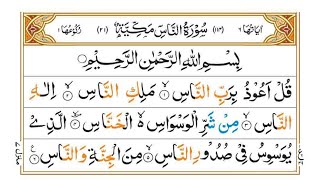 اٰیَاتُهَا ٦ (١١٤) سُوْرَةُ النَّاسِ مَكِّیَّةٌ (٢١) رُكُوْعُهَا ١
بِسْمِ اللّٰهِ الرَّحْمٰنِ الرَّحِیْمِ
قُلْ اَعُوْذُ بِرَبِّ النَّاسِ ۙ۝١ مَلِكِ النَّاسِ ۙ۝٢ اِلٰهِ
النَّاسِ ۙ۝٣ مِنْ شَرِّ الْوَسْوَاسِ ۙ۬ الْخَنَّاسِ ۪ۙ۝٤ الَّذِیْ
یُوَسْوِسُ فِیْ صُدُوْرِ النَّاسِ ۙ۝٥ مِنَ الْجِنَّةِ وَ النَّاسِ ۠۝٦